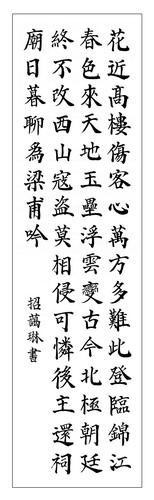 花近高樓傷客心萬方多難此登臨錦江
春色來天地玉壘浮雲變古今北極朝廷
終不改西山寇盜莫相侵可憐後主還祠
廟日暮聊為梁甫吟
招藹琳書